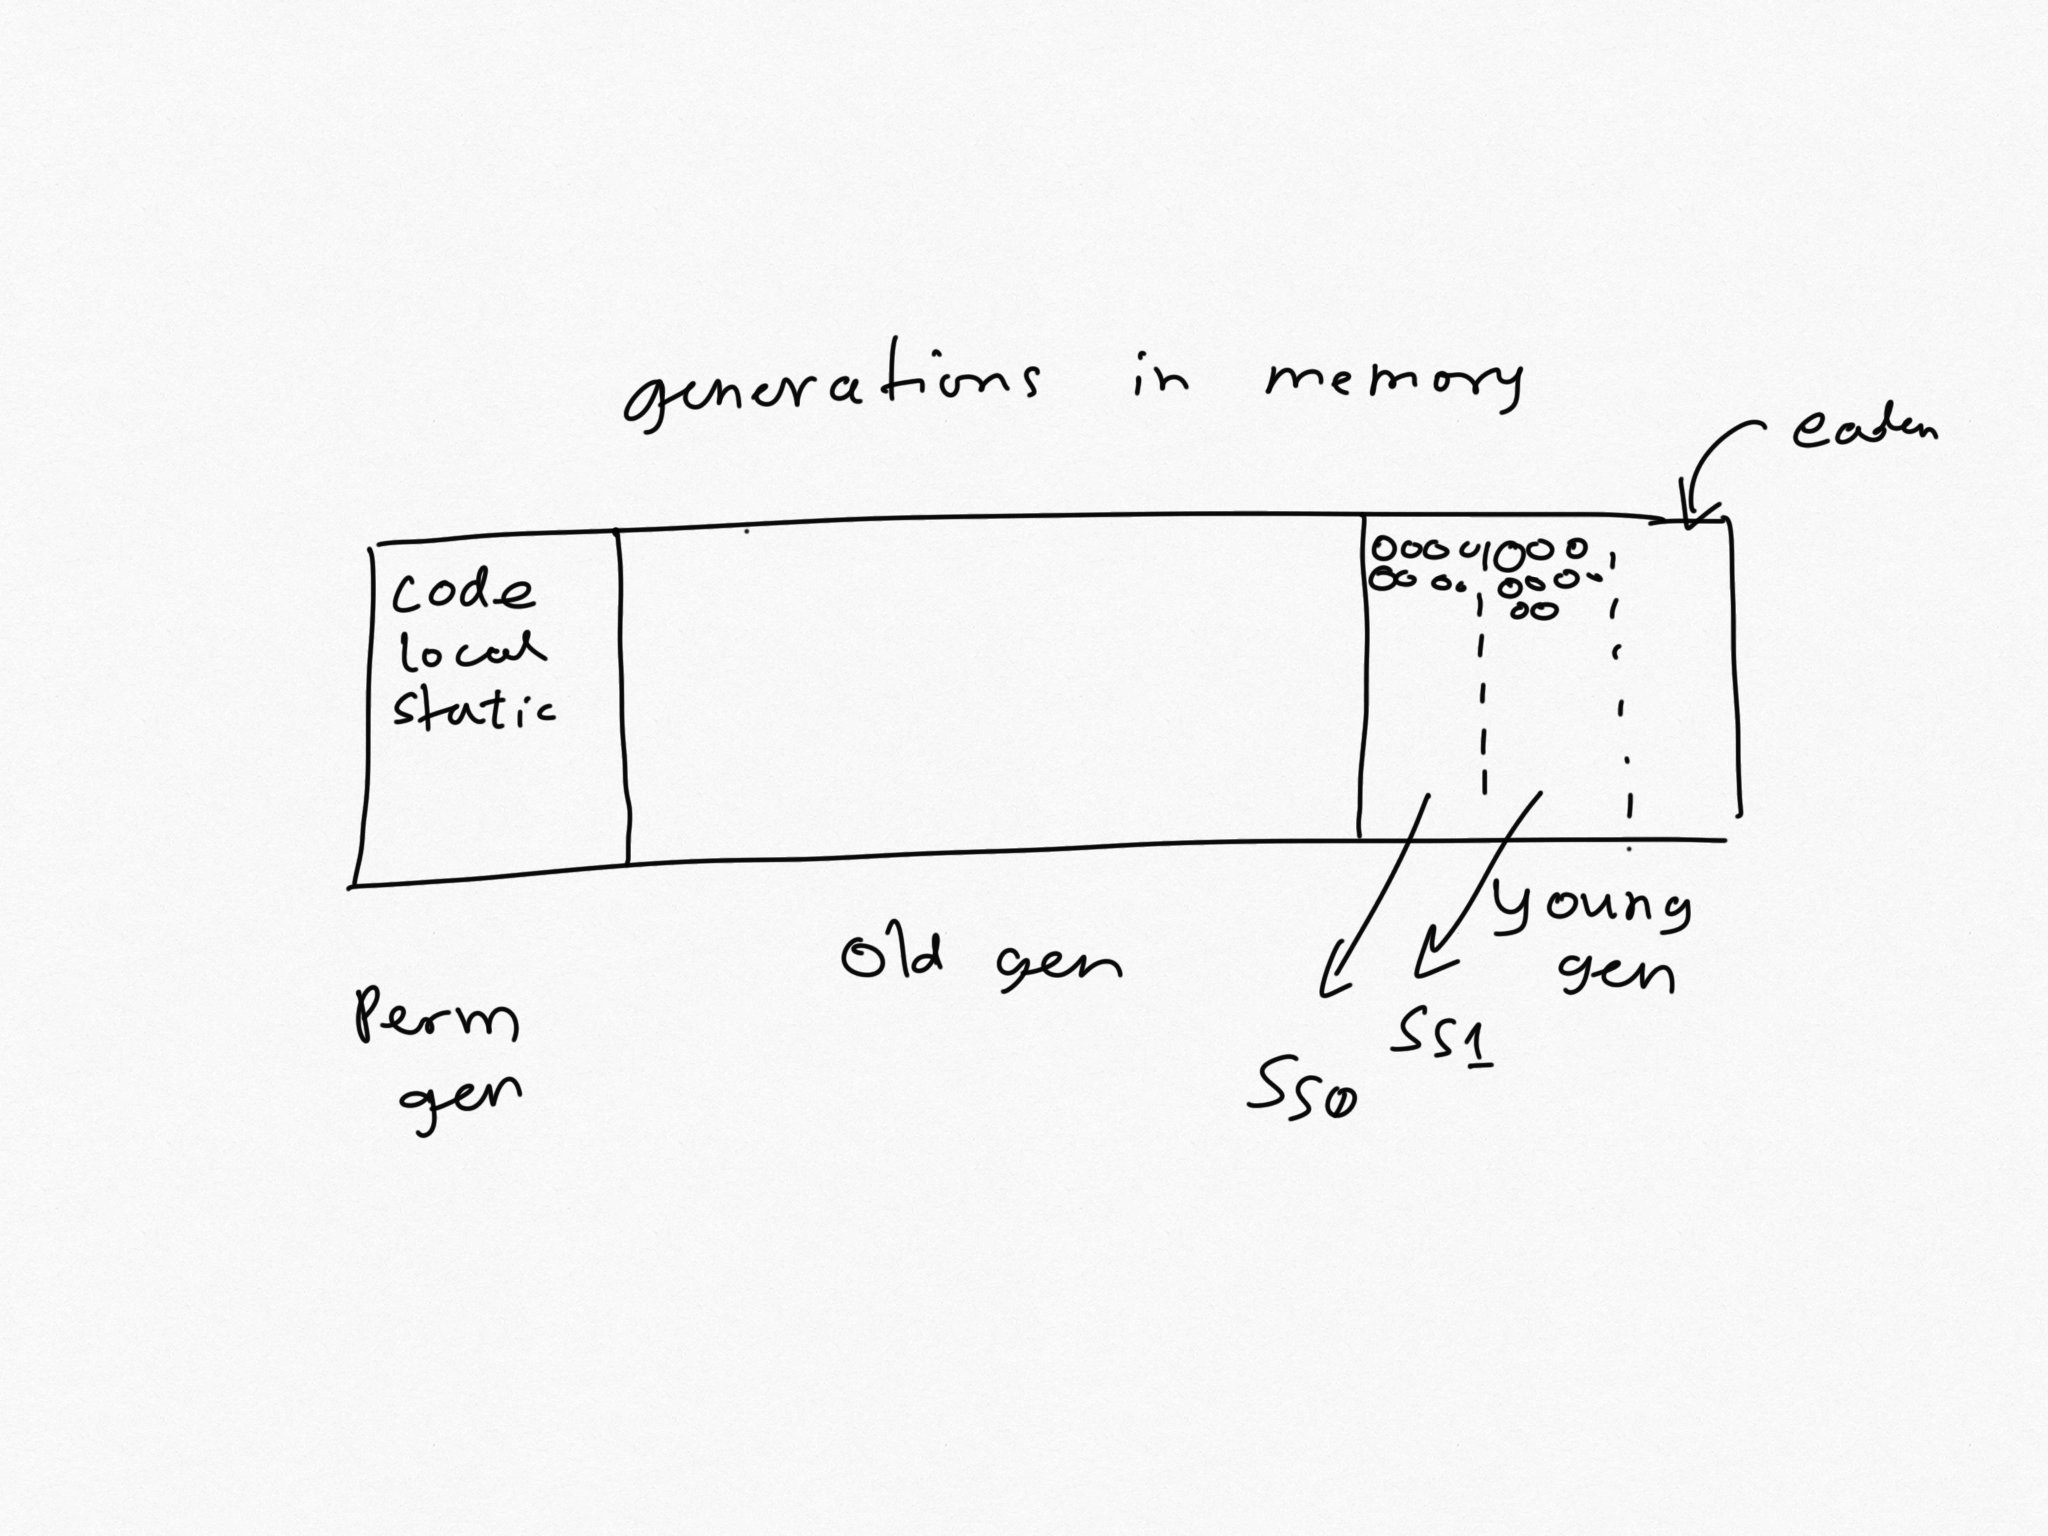 generations in memory
eaden
code
local
static
Old gen
young
gen
Perm
gen
SS1
SS0